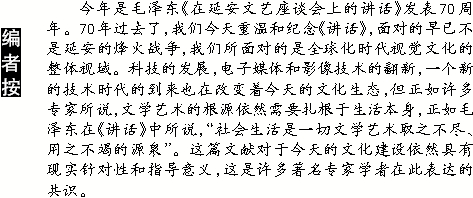 编者按
今年是毛泽东《在延安文艺座谈会上的讲话》发表70周
年。70年过去了，我们今天重温和纪念《讲话》，面对的早已不
是延安的烽火战争，我们所面对的是全球化时代视觉文化的
整体视域。科技的发展，电子媒体和影像技术的翻新，一个新
的技术时代的到来也在改变着今天的文化生态，但正如许多
专家所说，文学艺术的根源依然需要扎根于生活本身，正如毛
泽东在《讲话》中所说，“社会生活是一切文学艺术取之不尽、
用之不竭的源泉”。这篇文献对于今天的文化建设依然具有
现实针对性和指导意义，这是许多著名专家学者在此表达的
共识。